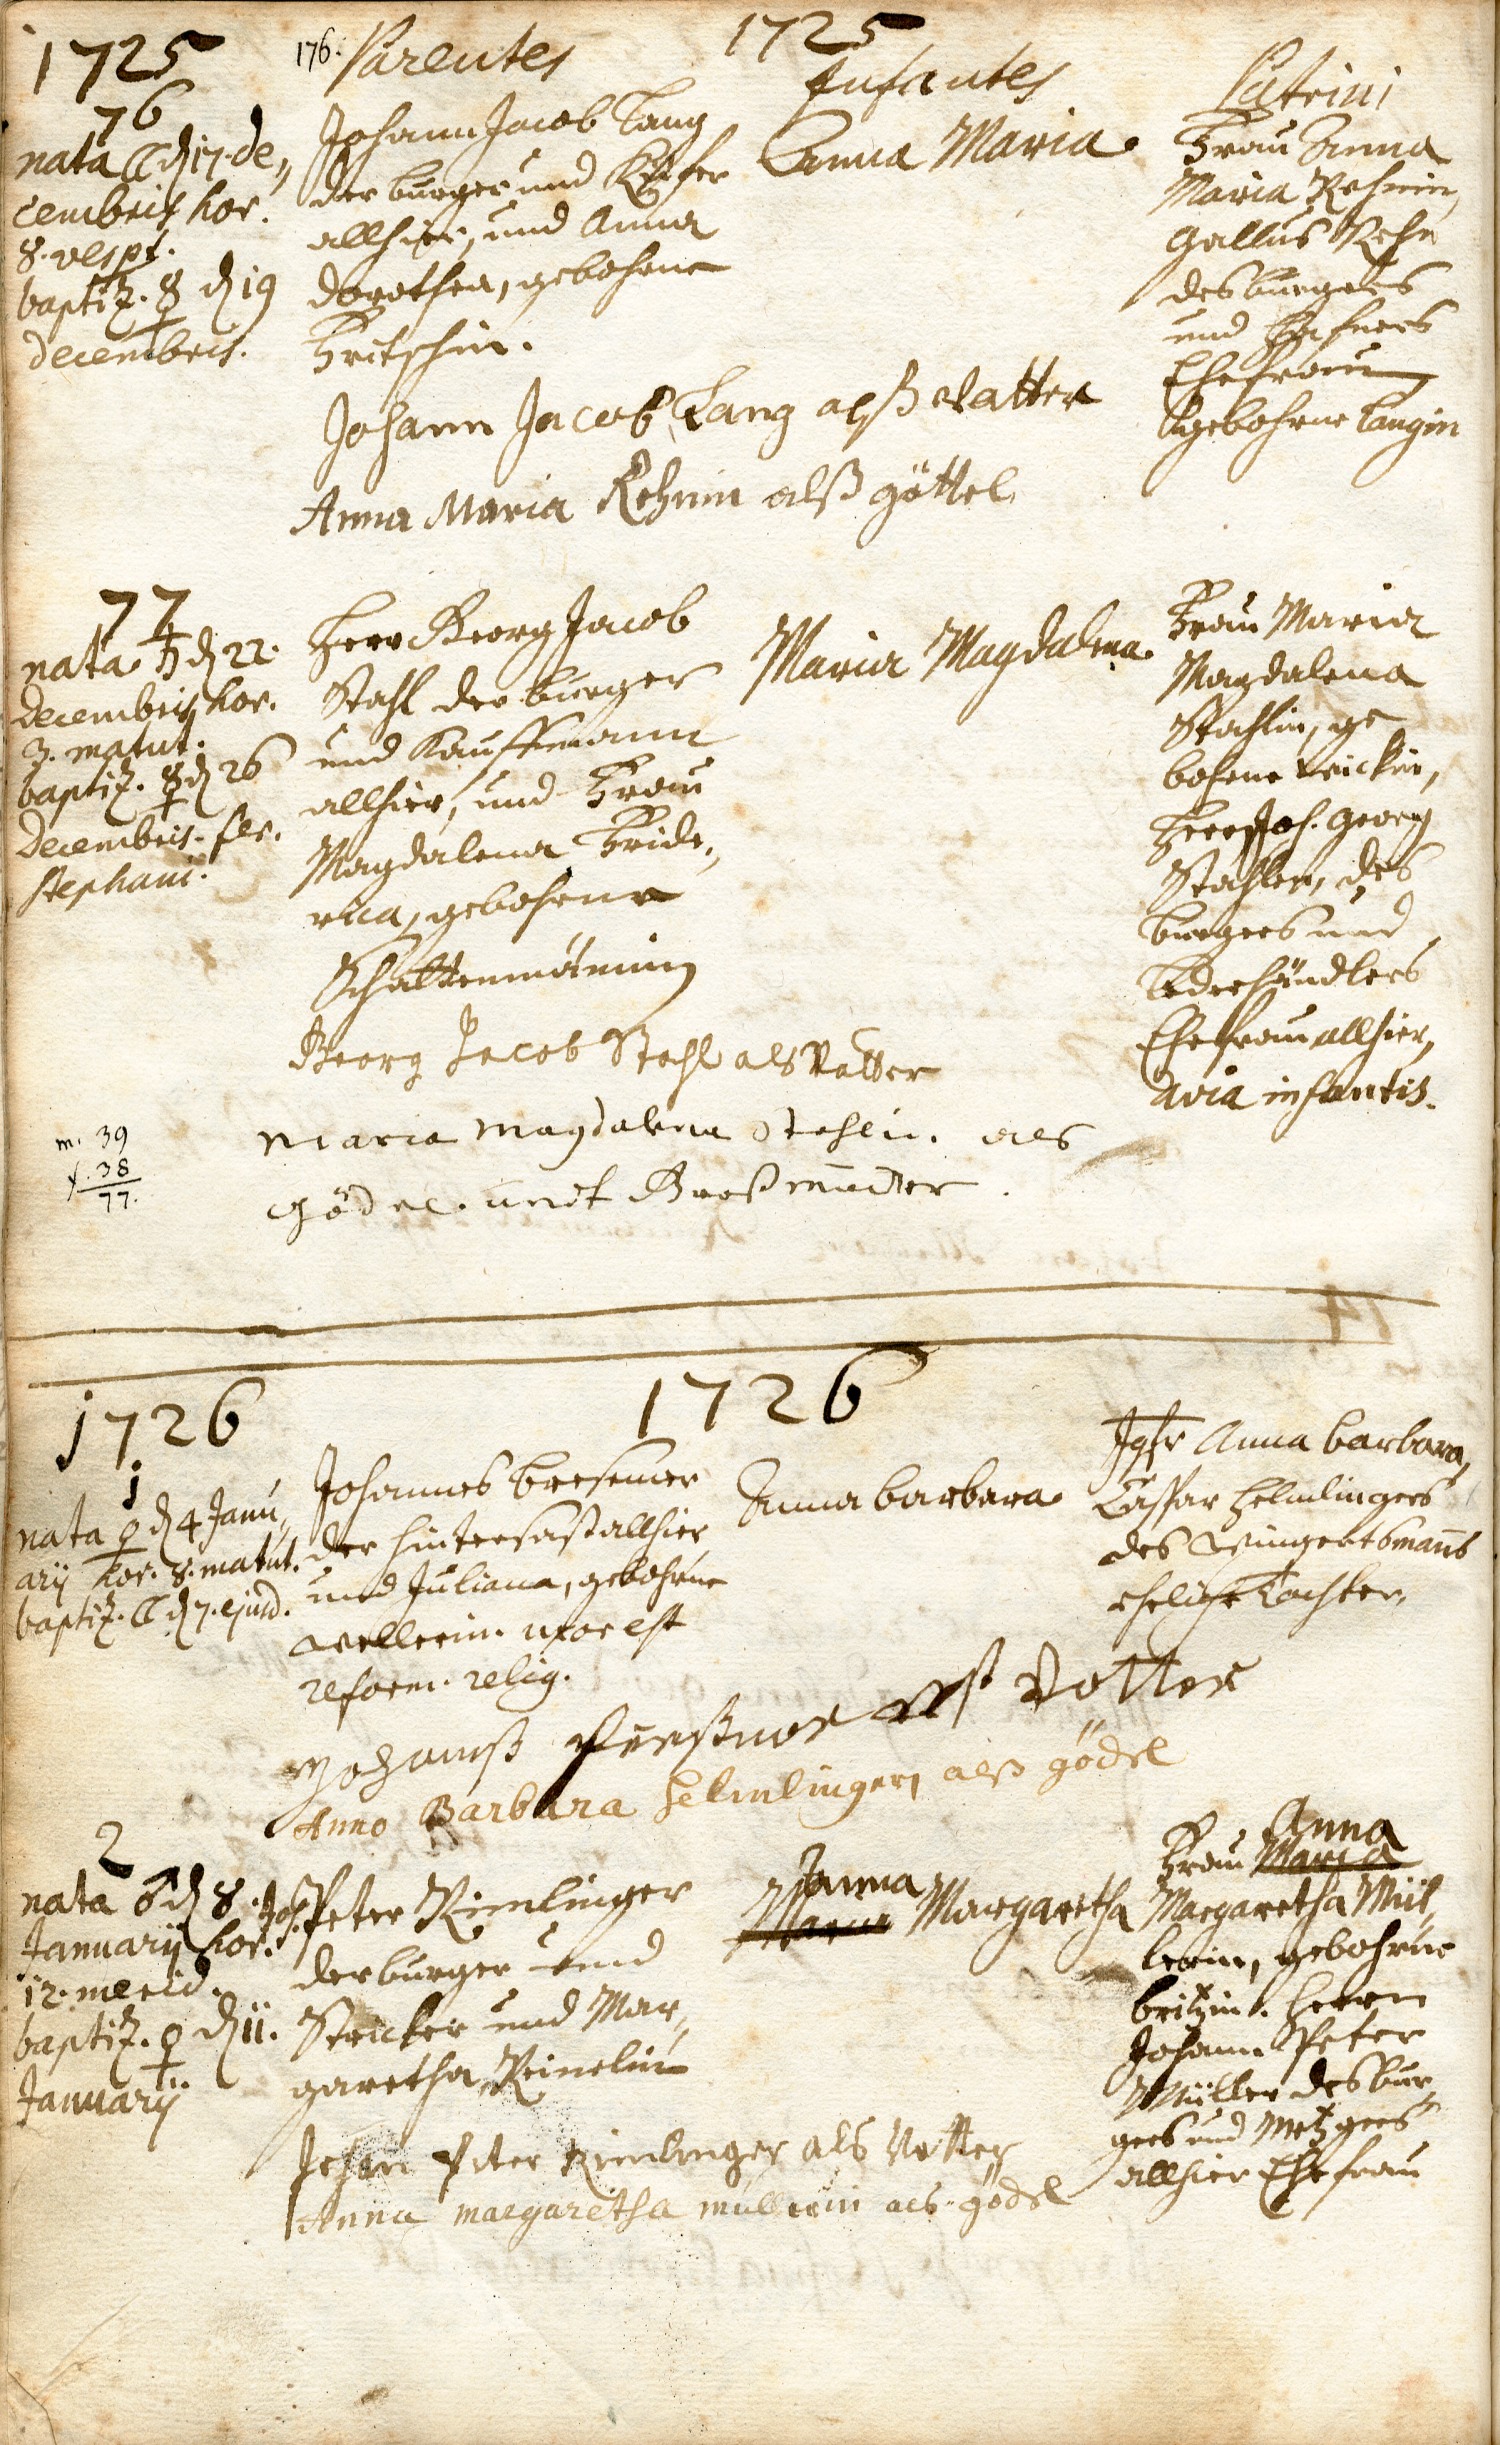 1725
176. Parentes
1725
Infantes
Patrini
76
nata ☾ d 17. de„
cembris hor.
8. vespt.
baptiz. ☿ d 19
decembris.
Johann Jacob Lang
der burger und Küfer
allhier, und Anna
Dorothea, gebohrne
Fritschin.
Anna Maria.
Frau Anna
Maria Rehmin,
Gallus Rehm
des burgers
und Hafners
Ehefrau
gebohrne Langin
Johann Jacob Lang alß Vatter
Anna Maria Rehmin alß göttel
77
nata ♄ d 22.
decembris hor.
3. matut.
baptiz. ☿ d 26
decembris. fer.
stephani.
Herr Georg Jacob
Stahl der burger
und Kauffmann
allhier, und Frau
Magdalena Fride„
rica, gebohrne
Schattenmännin
Maria Magdalena.
Frau Maria
Magdalena
Stahlin, ge
bohrne
Herr Joh. Georg
Stahlen, des
burgers und
Lederhändlers
Ehefrau allhier,
avia infantis.
Georg Jacob Stahl als Vatter
Maria Magdalena Stahlin. als
gödel. undt Großmutter.
m. 39
f. 38
77.
1726
1726
1
nata ♀ d 4 Janu„
arij hor. 8. matut.
baptiz. ☾ d 7. ejusd.
Johannes Bresemer
der hintersaß allhier
und Juliana, gebohrne
Wellerin. uxor est
reform. relig.
Anna Barbara
Jgfr Anna Barbara,
Caspar Helmlingers
des Wingertsmanns
eheliche Tochter.
Vatter
Anna Barbara Helmlingerin alß gödel
2
nata ♂ d 8.
Januarij hor.
12. merid.
baptiz. ♀ d 11.
Januarij
Joh. Peter Rimlinger
der burger und
Stricker und Mar„
garetha Reinelin
Anna
Maria Margaretha
Anna
Frau Maria
Margaretha Mül„
lerin, gebohrne
Britzin. Herrn
Johann Peter
Müller des bur„
gers und Metzgers
allhier Ehefrau
Johan Peter Rimlinger als Vatter
Anna Margaretha müllerin als gödel